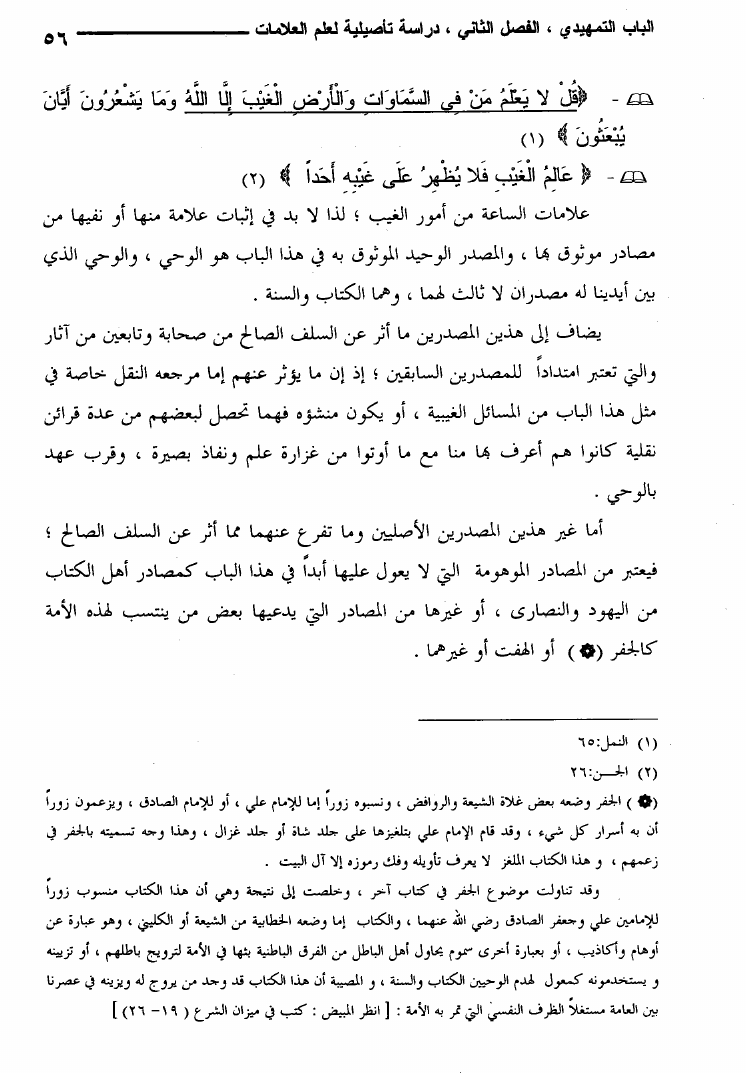 الباب التمهيدي ، الفصل الثاني ، دراسة تأصيلية لعلم العلامات ٥٦
- ﴿قُلْ لا يَعْلَمُ مَنْ فِي السَّمَاوَاتِ وَالْأَرْضِ الْغَيْبَ إِلَّا اللَّهُ وَمَا يَشْعُرُونَ أَيَّانَ
يُبْعَثُونَ ﴾ (١)
- ﴿ عَالِمُ الْغَيْبِ فَلا يُظْهِرُ عَلَى غَيْبِهِ أَحَداً ﴾ (٢)
علامات الساعة من أمور الغيب ؛ لذا لا بد في إثبات علامة منها أو نفيها من
مصادر موثوق بها ، والمصدر الوحيد الموثوق به في هذا الباب هو الوحي ، والوحي الذي
بين أيدينا له مصدران لا ثالث لهما ، وهما الكتاب والسنة .
يضاف إلى هذين المصدرين ما أثر عن السلف الصالح من صحابة وتابعين من آثار
والتي تعتبر امتداداً للمصدرين السابقين ؛ إذ إن ما يؤثر عنهم إما مرجعه النقل خاصة في
مثل هذا الباب من المسائل الغيبية ، أو يكون منشؤه فهما تحصل لبعضهم من عدة قرائن
نقلية كانوا هم أعرف بها منا مع ما أوتوا من غزارة علم ونفاذ بصيرة ، وقرب عهد
بالوحي .
أما غير هذين المصدرين الأصليين وما تفرع عنهما مما أثر عن السلف الصالح ؛
فيعتبر من المصادر الموهومة التي لا يعول عليها أبداً في هذا الباب كمصادر أهل الكتاب
من اليهود والنصارى ، أو غيرها من المصادر التي يدعيها بعض من ينتسب لهذه الأمة
كالجفر (۞) أو الهفت أو غيرهما .
(١) النمل:٦٥
(٢) الجـــن:٢٦
(۞) الجفر وضعه بعض غلاة الشيعة والروافض ، ونسبوه زوراً إما للإمام علي ، أو للإمام الصادق ، ويزعمون زوراً
أن به أسرار كل شيء ، وقد قام الإمام علي بتلغيزها على جلد شاة أو جلد غزال ، وهذا وجه تسميته بالجفر في
زعمهم ، و هذا الكتاب الملغز لا يعرف تأويله وفك رموزه إلا آل البيت .
وقد تناولت موضوع الجفر في كتاب آخر ، وخلصت إلى نتيجة وهي أن هذا الكتاب منسوب زوراً
للإمامين علي وجعفر الصادق رضي الله عنهما ، والكتاب إما وضعه الخطابية من الشيعة أو الكليني ، وهو عبارة عن
أوهام وأكاذيب ، أو بعبارة أخرى سموم يحاول أهل الباطل من الفرق الباطنية بثها في الأمة لترويج باطلهم ، أو تزيينه
و يستخدمونه كمعول لهدم الوحيين الكتاب والسنة ، و المصيبة أن هذا الكتاب قد وجد من يروج له ويزينه في عصرنا
بين العامة مستغلاً الظرف النفسي التي تمر به الأمة : [ انظر المبيض : كتب في ميزان الشرع ( ١٩- ٢٦) ]